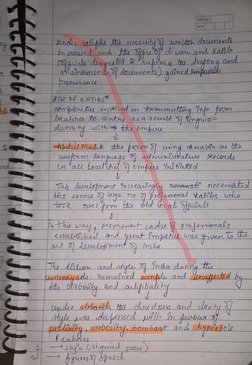 under caliphs the necessity of written documents
increased and the office of diwan and katib
(officials designated to supervise the drafting and
maintenance of documents) gained
prominence
Rise of KATIBS
complexities involved in transmitting info from
localities to centre as a result of linguistic
diversity within the empire
→ Abdul Malik the process of using Arabic as the
uniform language of administrative records
in all localities of empire initiated
This development increasingly necessitated
the service of large no of professional katibs who
took over from the old local officials
In this way, permanent cadre of professionals
established and great impetus was given to the
art of development of Insha
The diction and style of Insha during the
Umayyads remained simple and unaffected by
the verbosity and artificiality
under the directness and clarity of
style was dispensed with in favour of
prolixity, verbosity, bombast and hyperbole
Features
→ saj'a (rhymed prose)
→ figures of speech